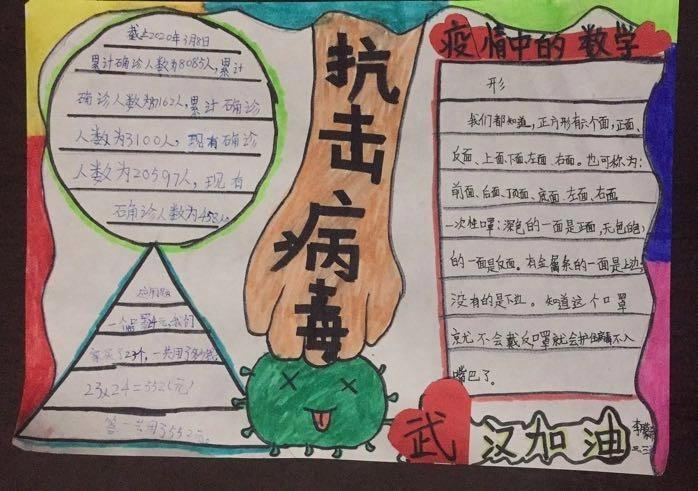 截止2020年3月8日
累计确诊人数为8085人,累计
确诊人数为162人,累计确诊
人数为3100人,现有确诊
人数为20597人,现有
确诊人数为458人
应用题
23×24=552(元)
答一共用了552元。
抗击病毒
疫情中的数学
形
我们都知道,正方形有六个面,正面、
反面、上面、下面、左面、右面。也可称为:
前面、后面、顶面、底面、左面、右面
一次性口罩:深色的一面是正面,无色的
的一面是反面。有金属条的一面是上边,
没有的是下边。知道这个口罩
就不会戴反口罩就会护住病毒不入
嘴巴了。
武汉加油